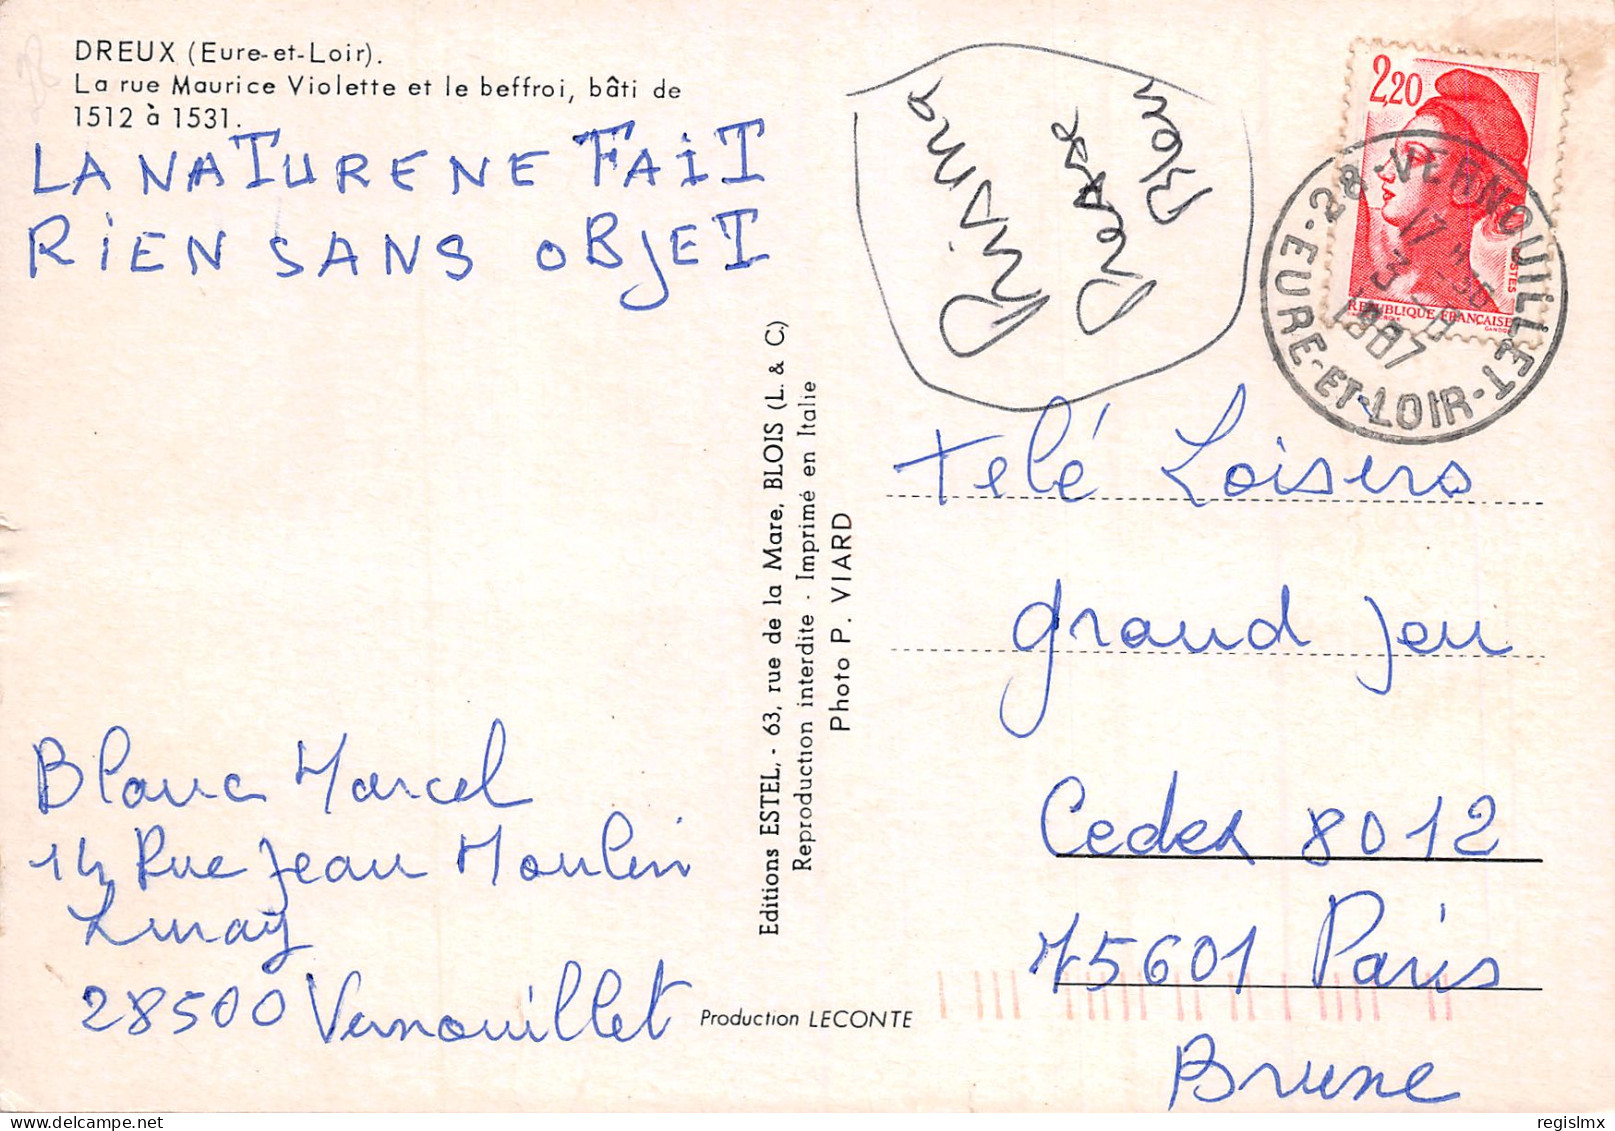 DREUX (Eure-et-Loir).
La rue Maurice Violette et le beffroi, bâti de
1512 à 1531.
LA NATURE NE FAIT
RIEN SANS OBJET
Blanc Marcel
14 Rue Jean Moulin
Lunay
28500 Vernouillet
Editions ESTEL, - 63, rue de la Mare, BLOIS (L. & C.)
Reproduction interdite - Imprimé en Italie
Photo P. VIARD
Production LECONTE
Prisma
Presse
Bleu
2,20
POSTES
REPUBLIQUE FRANÇAISE
28-VERNOUILLET
EURE-ET-LOIR
17 H 30
3
1987
Télé Loisirs
grand Jeu
Cedex 8012
75601 Paris
Brune
regislmx